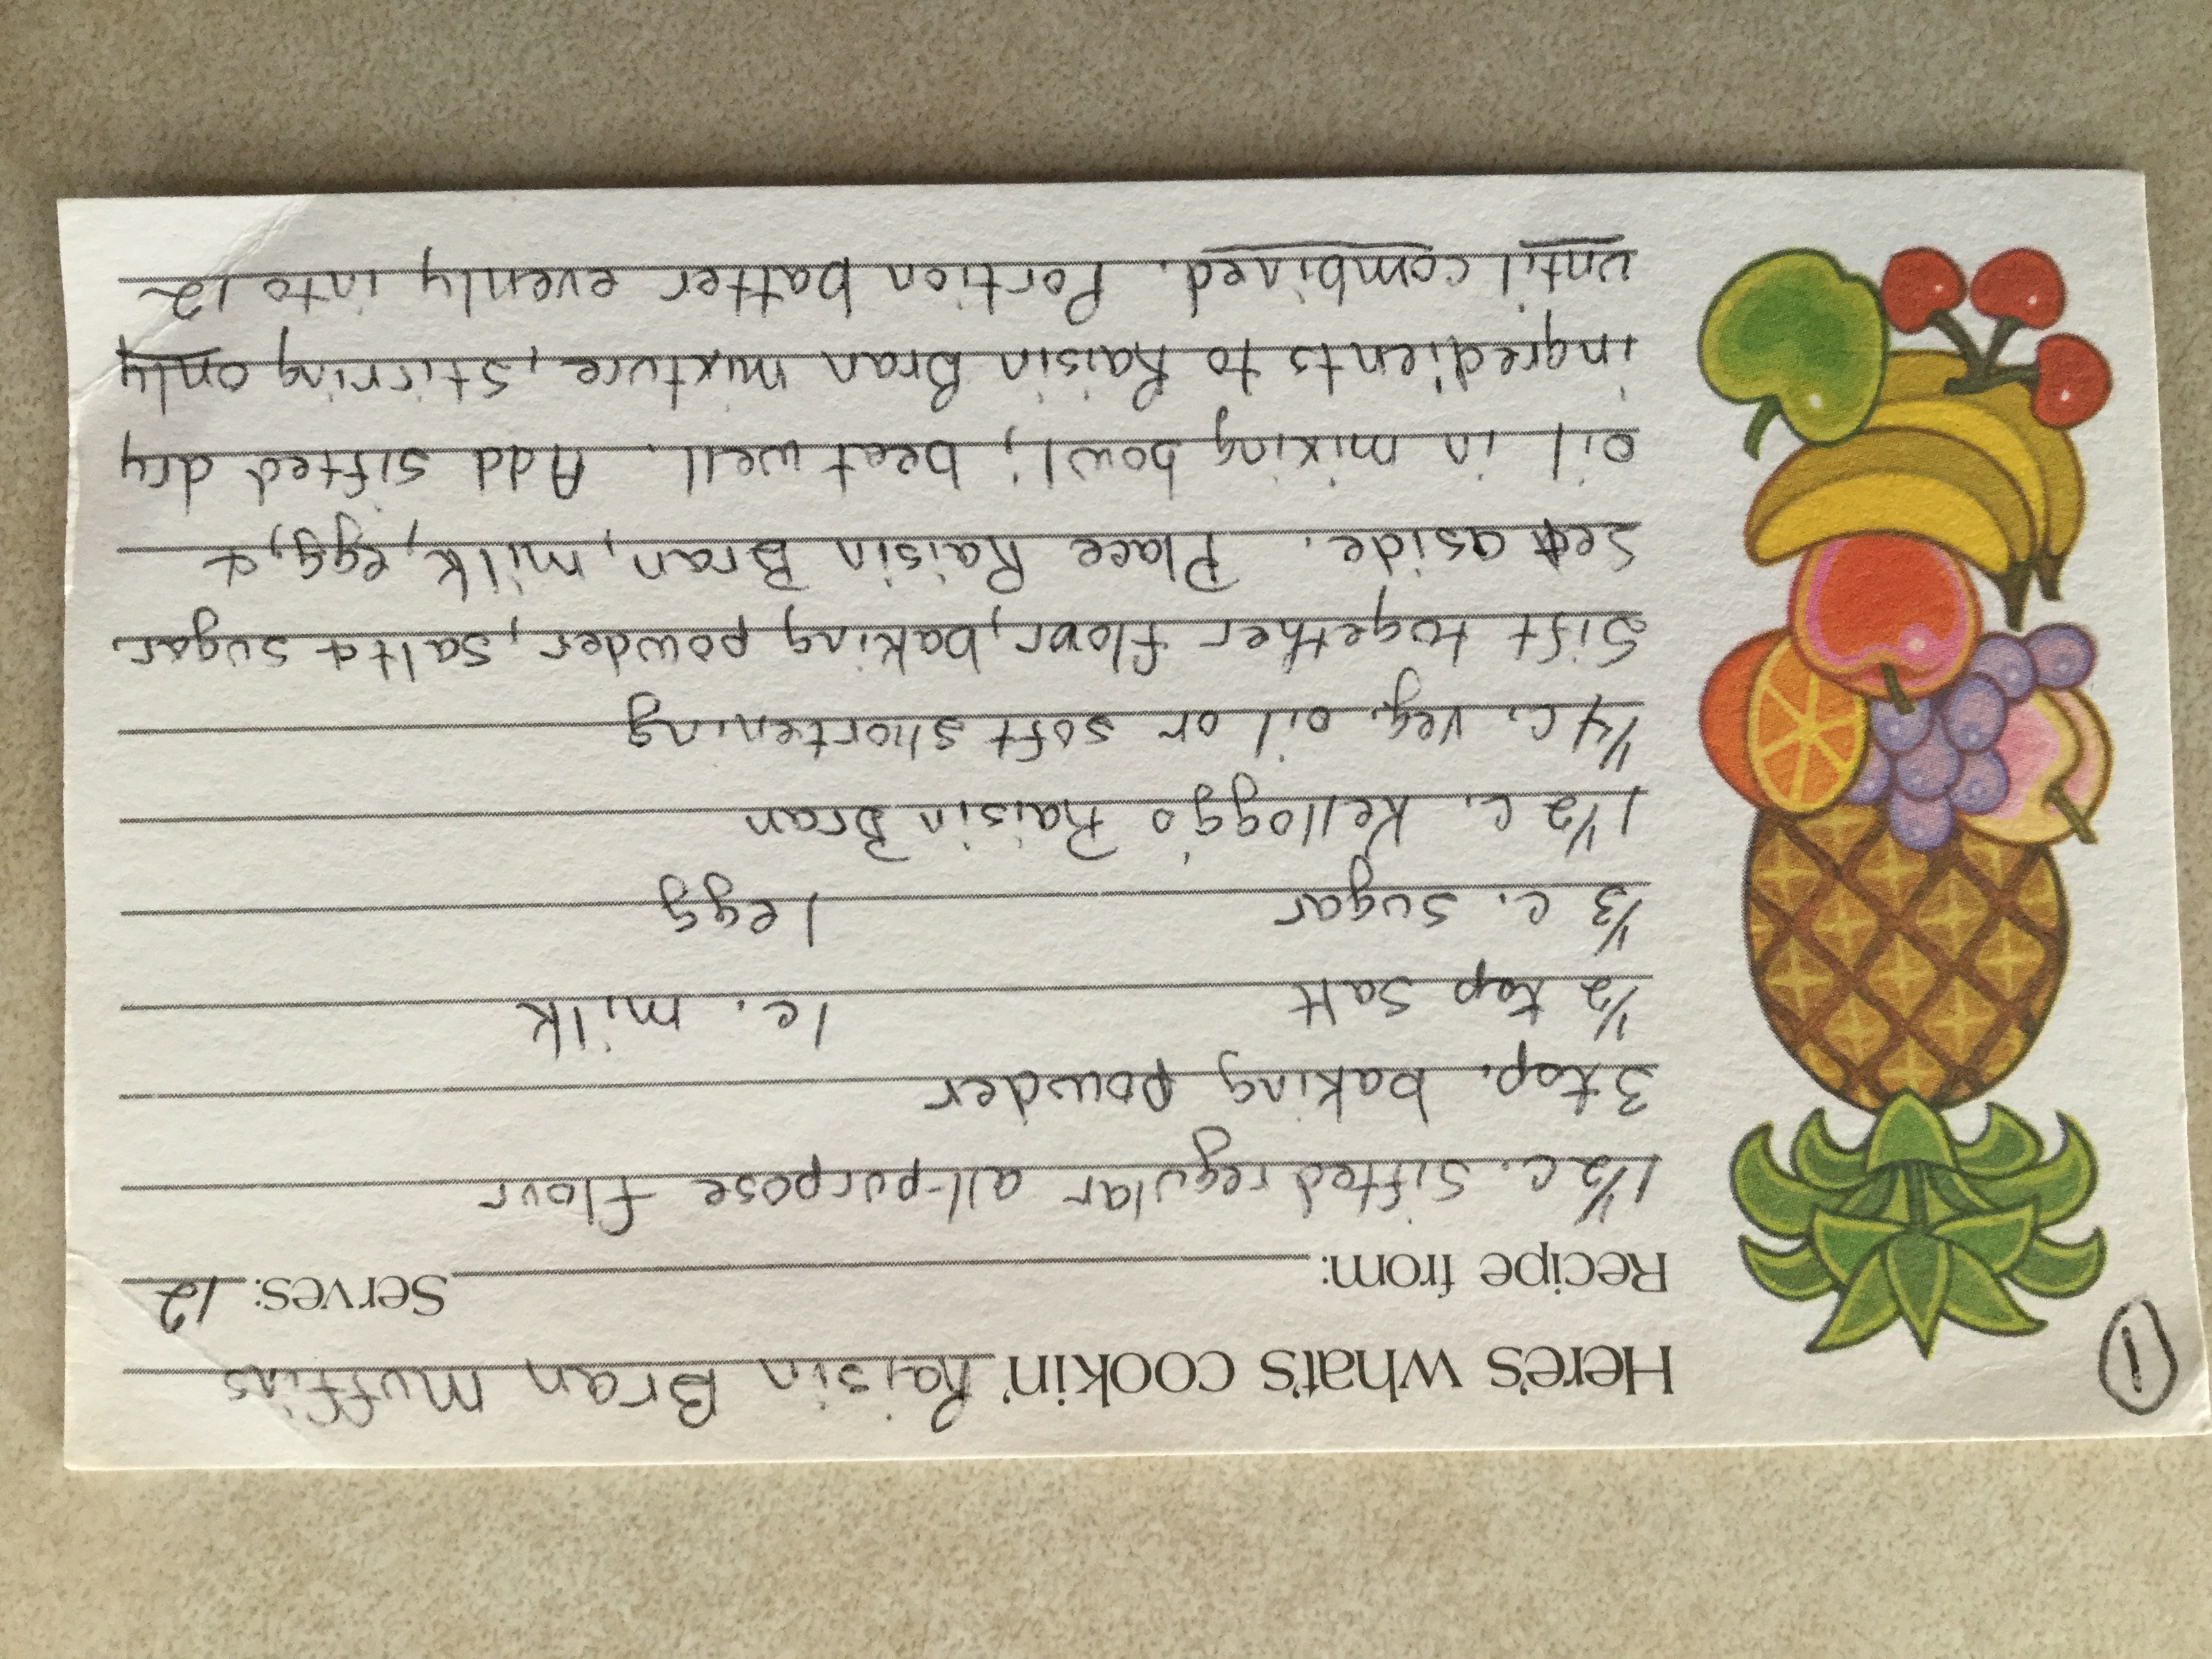 1
Here's what's cookin' Raisin Bran Muffins
Recipe from: Serves: 12
1 1/2 c. sifted regular all-purpose flour
3 tsp. baking powder
1/2 tsp salt 1 c. milk
1/3 c. sugar 1 egg
1 1/2 c. Kellogg's Raisin Bran
1/4 c. veg. oil or soft shortening
Sift together flour, baking powder, salt & sugar.
Set aside. Place Raisin Bran, milk, egg, &
oil in mixing bowl; beat well. Add sifted dry
ingredients to Raisin Bran mixture, stirring only
until combined. Portion batter evenly into 12